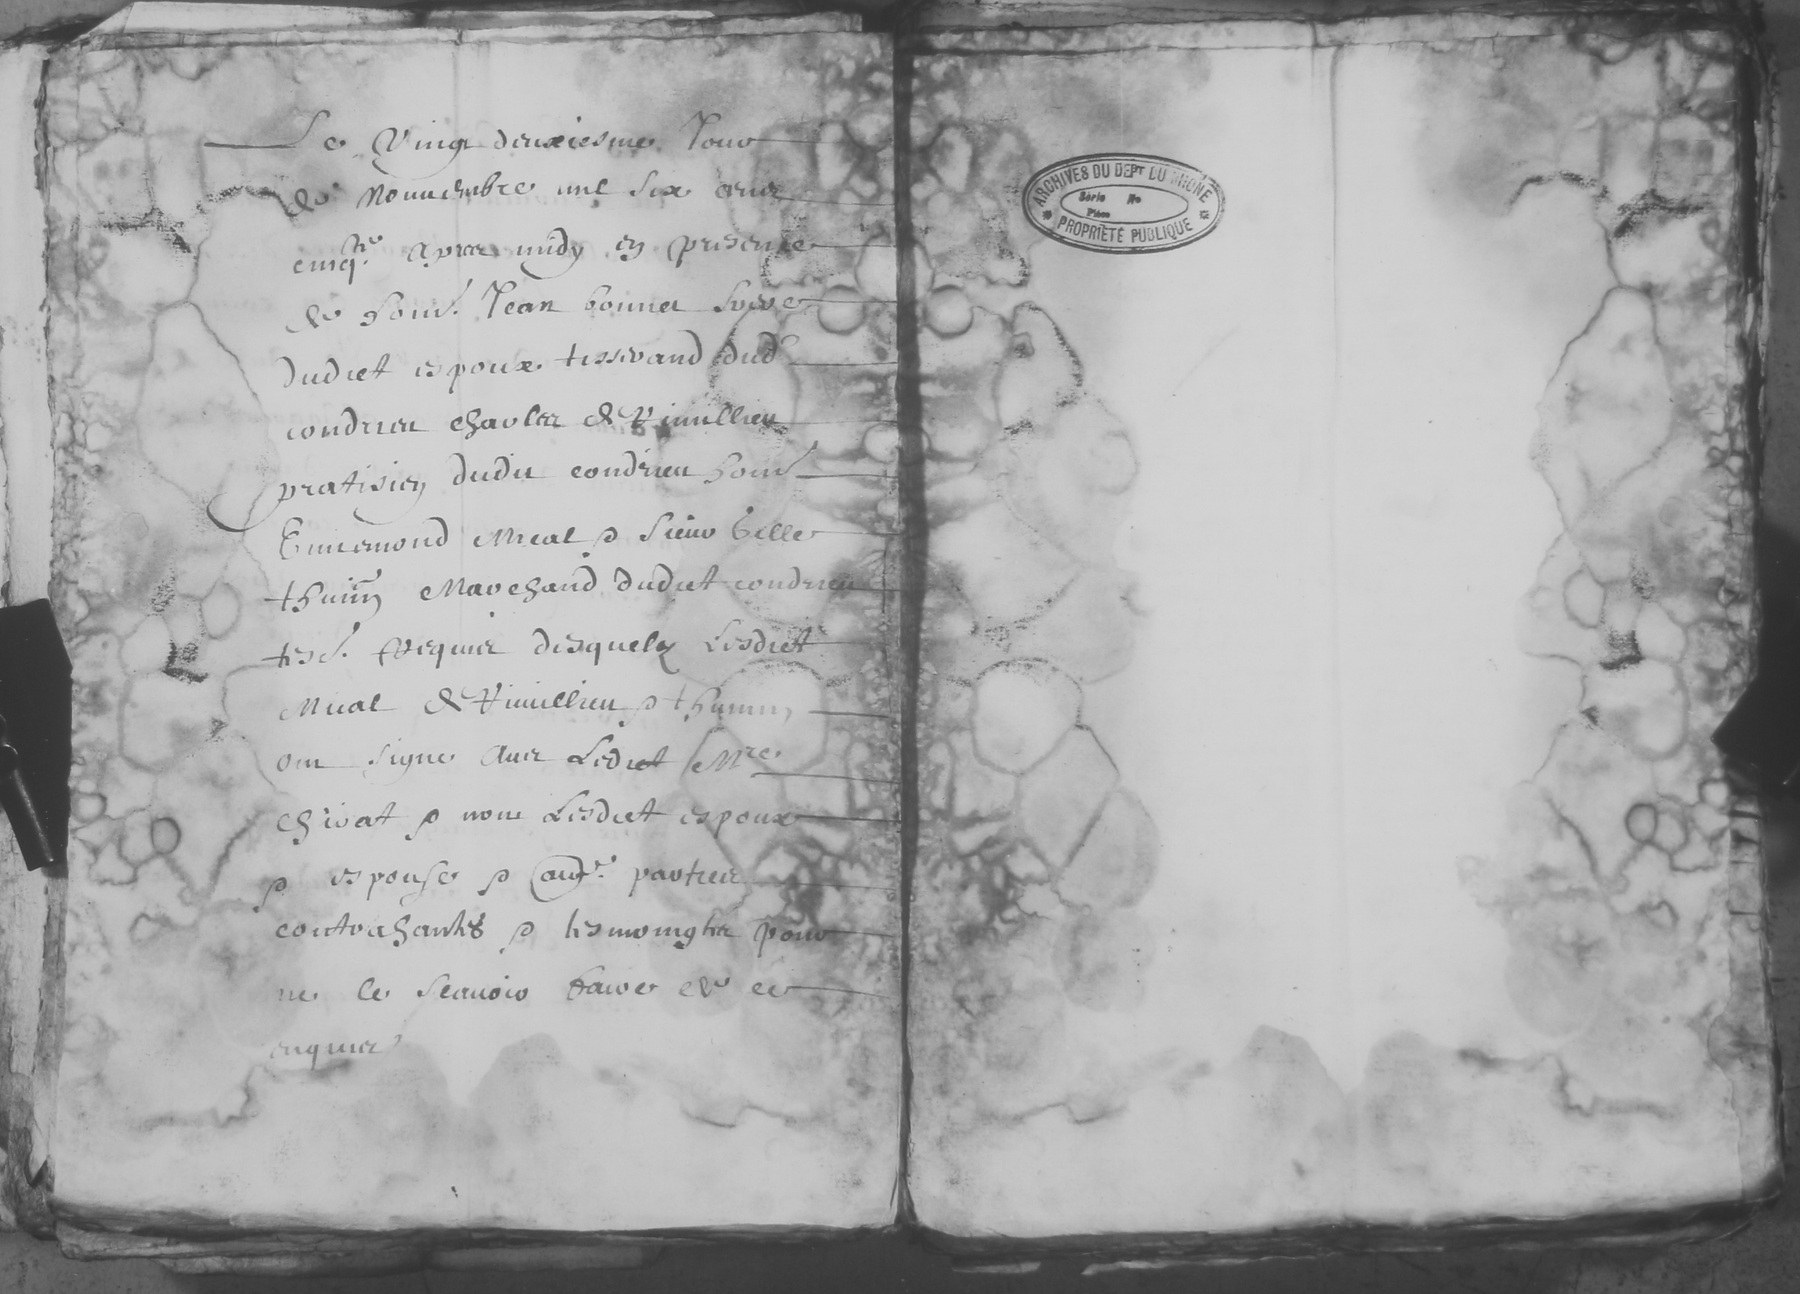 Le Vingt deuxiesme Jour
de Nouuembre mil six cent
cinqte apres midy en presence
de honn. Jean bonnet frere
dudict espoux tisserand dud
condrieu charles de Vimillieu
pratisien dudit condrieu honn
Ennemond Mical & sieur
Marchand dudict condrieu
tes. requis desquelz Lesdict
Mical de Vimillieu &
ont signe auec Ledict Mre
chirat & non Lesdict espoux
& espouse & partie
contrahantes & tesmoingtz pour
ne le scauoir faire de ce
enquis
ARCHIVES DU DEPT DU RHONE
Série No
Pièce
PROPRIÉTÉ PUBLIQUE